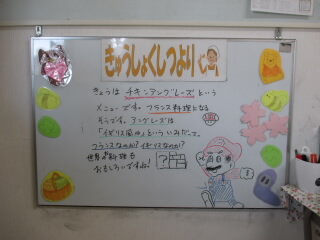 きゅうしょくしつより
きょうは チキンアングレーズ という
メニューです。フランス料理になる
そうです。アングレーズは
「イギリス風の」という いみだって。
フランスなのか? イギリスなのか?
世界の料理も
おもしろいですね!